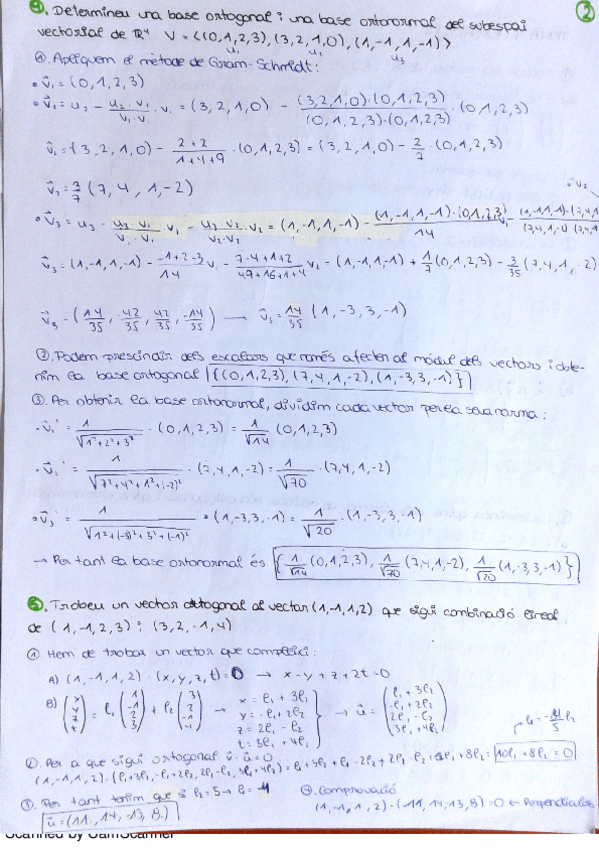 ②
④. Determineu una base ortogonal i una base ortonormal del subespai
vectorial de ℝ⁴ V = ⟨(0,1,2,3), (3,2,1,0), (1,-1,1,-1)⟩
u₁ u₂ u₃
① Apliquem el mètode de Gram-Schmidt:
• v⃗₁ = (0,1,2,3)
• v⃗₂ = u₂ - (u₂·v₁)/(v₁·v₁) · v₁ = (3,2,1,0) - ((3,2,1,0)·(0,1,2,3))/((0,1,2,3)·(0,1,2,3)) · (0,1,2,3)
v⃗₂ = (3,2,1,0) - (2+2)/(1+4+9) · (0,1,2,3) = (3,2,1,0) - 2/7 · (0,1,2,3)
v⃗₂ = 3/7 (7,4,1,-2)
• v⃗₃ = u₃ - (u₃·v₁)/(v₁·v₁) v₁ - (u₃·v₂)/(v₂·v₂) v₂ = (1,-1,1,-1) - ((1,-1,1,-1)·(0,1,2,3))/14 v₁ -
v⃗₃ = (1,-1,1,-1) - (-1+2-3)/14 v₁ - (7-4+1+2)/(49+16+1+4) v₂ - (1,-1,1,-1) + 1/7 (0,1,2,3) - 3/35 (7,4,1,-2)
v⃗₃ - (14/35, -42/35, 42/35, -14/35) → v⃗₃ = 14/35 (1,-3,3,-1)
② Podem prescindir dels escalars que només afecten al mòdul dels vectors i obte-
nim la base ortogonal {(0,1,2,3), (7,4,1,-2), (1,-3,3,-1)}
③ Per obtenir la base ortonormal, dividim cada vector per la seva norma:
• v⃗₁' = 1/√(1²+2²+3²) · (0,1,2,3) = 1/√14 (0,1,2,3)
• v⃗₂' = 1/√(7²+4²+1²+(-2)²) · (7,4,1,-2) = 1/√70 · (7,4,1,-2)
• v⃗₃' = 1/√(1²+(-3)²+3²+(-1)²) · (1,-3,3,-1) = 1/√20 · (1,-3,3,-1)
→ Per tant la base ortonormal és {1/√14 (0,1,2,3), 1/√70 (7,4,1,-2), 1/√20 (1,-3,3,-1)}
⑤. Trobeu un vector ortogonal al vector (1,-1,1,2) que sigui combinació lineal
de (1,-1,2,3) i (3,2,-1,4)
① Hem de trobar un vector que compleixi:
A) (1,-1,1,2) · (x,y,z,t) = 0 → x-y+z+2t=0
B) (x y z t) = l₁ (1 -1 2 3) + l₂ (3 2 -1 4) → x = l₁ + 3l₂
y = -l₁ + 2l₂
z = 2l₁ - l₂
t = 3l₁ + 4l₂
→ u⃗ = (l₁+3l₂ -l₁+2l₂ 2l₁-l₂ 3l₁+4l₂)
② Per a que sigui ortogonal v⃗·u⃗=0
(1,-1,1,2)·(l₁+3l₂,-l₁+2l₂,2l₁-l₂,3l₁+4l₂) = l₁+3l₂+l₁-2l₂+2l₁-l₂+6l₁+8l₂ = 10l₁+8l₂=0
③. Per tant tenim que si l₂=5 → l₁=-4
u⃗ = (11, 14, -13, 8)
④. Comprovació
(1,-1,1,2)·(11,14,-13,8)=0 ← Perpendiculars
Scanned by CamScanner